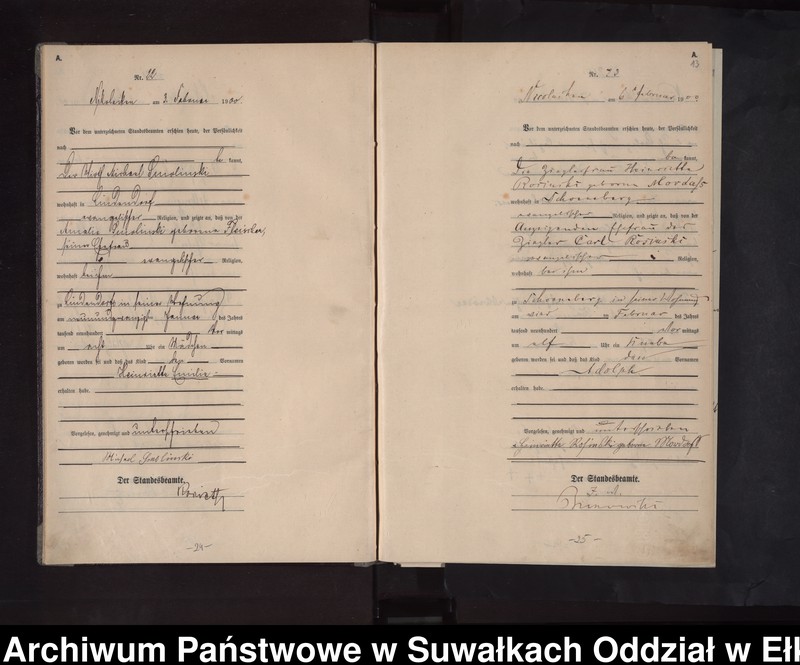 A.
Nr.
am 3. Februar 1900.
Vor dem unterzeichneten Standesbeamten erschien heute, der Persönlichkeit
nach
kannt,
Der Wirth Michael
wohnhaft in Lindendorf
evangelischer Religion, und zeigte an, daß von der
Amalie geborene
seiner Ehefrau
evangelischer Religion,
wohnhaft bei ihm
zu Lindendorf in seiner Wohnung
am Januar des Jahres
tausend neunhundert Vor mittags
um acht Uhr ein Mädchen
geboren worden sei und daß das Kind Vornamen
Henriette Emilie
erhalten habe.
Vorgelesen, genehmigt und unterschrieben
Michael
Der Standesbeamte.
-24-
A.
13
Nr. 22
am 6. Februar 1900
Vor dem unterzeichneten Standesbeamten erschien heute, der Persönlichkeit
nach
kannt,
Die Zieglerfrau Henriette
Rosinski geborene Mordaß
wohnhaft in Schoeneberg
evangelischer Religion, und zeigte an, daß von der
Anzeigenden Ehefrau des
Ziegler Carl Rosinski
evangelischer Religion,
wohnhaft bei ihm
zu Schoeneberg in seiner Wohnung
am Februar des Jahres
tausend neunhundert Vor mittags
um elf Uhr ein Knabe
geboren worden sei und daß das Kind den Vornamen
Adolph
erhalten habe.
Vorgelesen, genehmigt und unterschrieben
Henriette Rosinski geborene Mordaß
Der Standesbeamte.
-25-
Archiwum Państwowe w Suwałkach Oddział w Eł